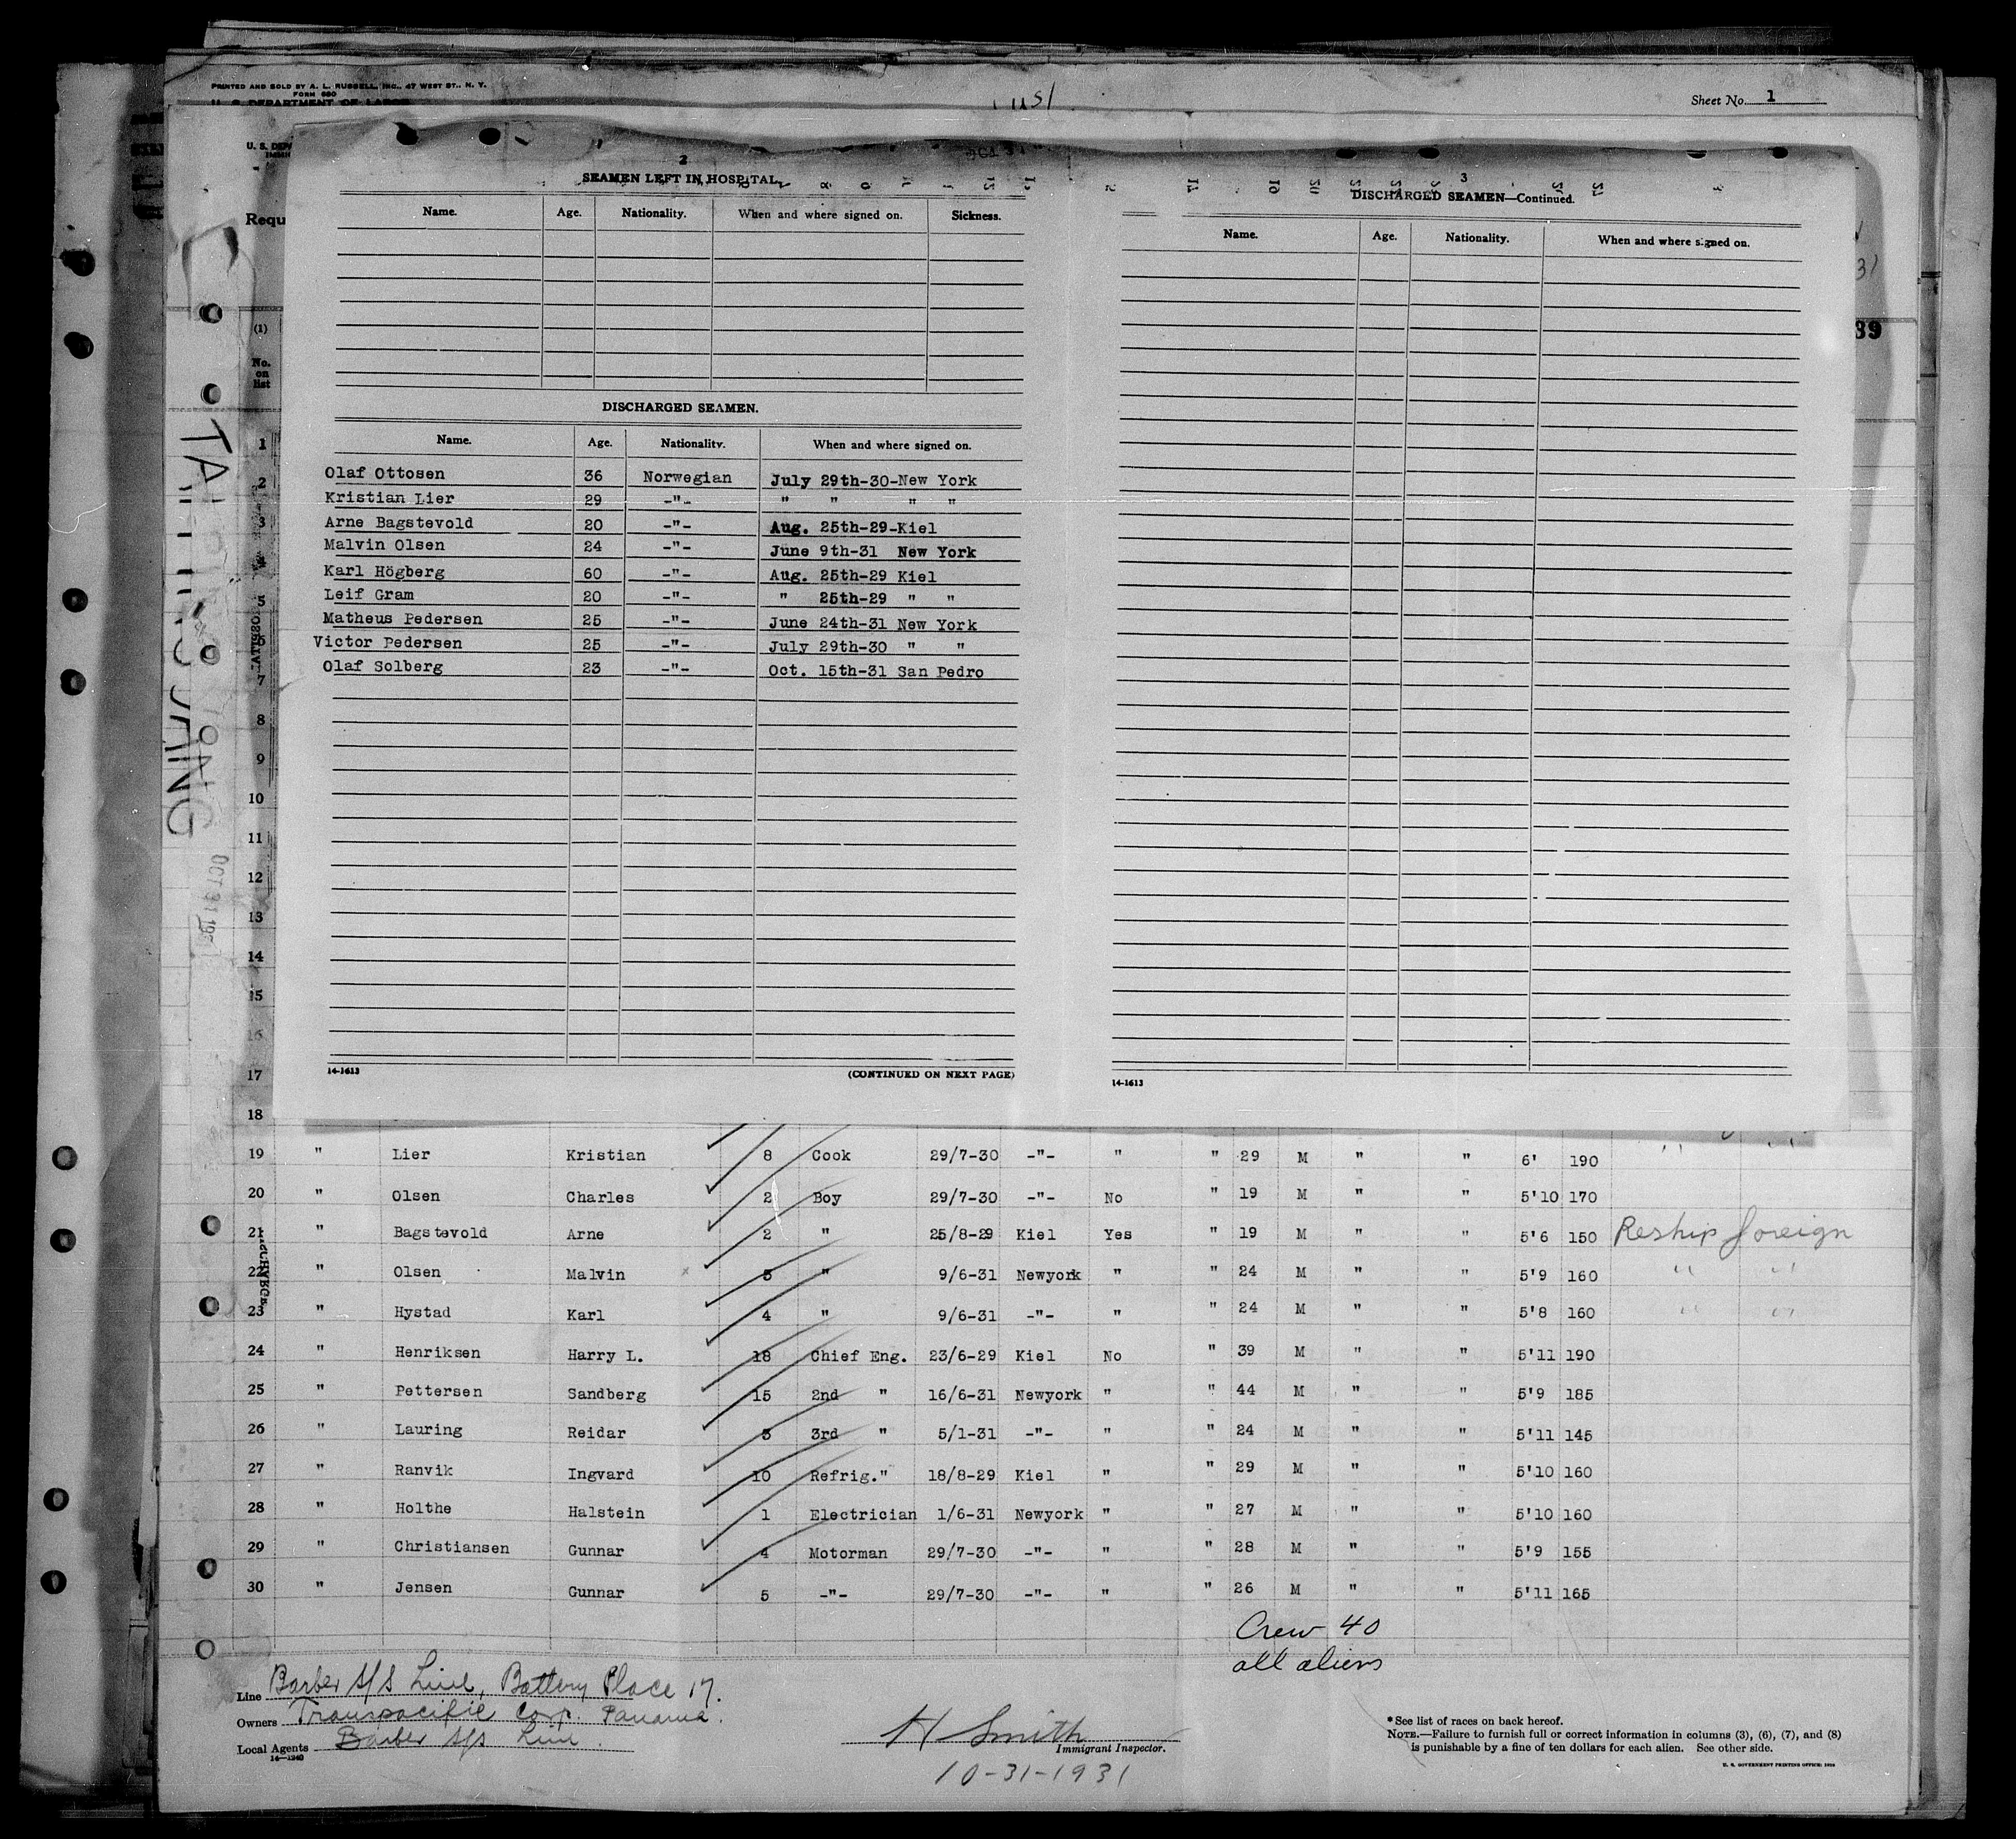 PRINTED AND SOLD BY A. L. RUSSELL, INC., 47 WEST ST., N. Y.
FORM 680
U. S. DEPARTMENT OF LABOR
Sheet No. 1
U. S. DEP
Requ
(1)
No. on list
39
2
SEAMEN LEFT IN HOSPITAL.
Name. Age. Nationality. When and where signed on. Sickness.
DISCHARGED SEAMEN.
Name. Age. Nationality. When and where signed on.
Olaf Ottosen 36 Norwegian July 29th-30-New York
Kristian Lier 29 -"- " " " "
Arne Bagstevold 20 -"- Aug. 25th-29-Kiel
Malvin Olsen 24 -"- June 9th-31 New York
Karl Högberg 60 -"- Aug. 25th-29 Kiel
Leif Gram 20 -"- " 25th-29 " "
Matheus Pedersen 25 -"- June 24th-31 New York
Victor Pedersen 25 -"- July 29th-30 " "
Olaf Solberg 23 -"- Oct. 15th-31 San Pedro
14-1613 (CONTINUED ON NEXT PAGE)
3
DISCHARGED SEAMEN—Continued.
Name. Age. Nationality. When and where signed on.
14-1613
1
2
3
4
5
6
7
8
9
10
11
12
13
14
15
16
17
18
19 " Lier Kristian 8 Cook 29/7-30 -"- " " 29 M " " 6' 190
20 " Olsen Charles 2 Boy 29/7-30 -"- No " 19 M " " 5'10 170
21 " Bagstevold Arne 2 " 25/8-29 Kiel Yes " 19 M " " 5'6 150 Reship foreign
22 " Olsen Malvin 5 " 9/6-31 Newyork " " 24 M " " 5'9 160 " "
23 " Hystad Karl 4 " 9/6-31 -"- " " 24 M " " 5'8 160 " "
24 " Henriksen Harry L. 18 Chief Eng. 23/6-29 Kiel No " 39 M " " 5'11 190
25 " Pettersen Sandberg 15 2nd " 16/6-31 Newyork " " 44 M " " 5'9 185
26 " Lauring Reidar 3 3rd " 5/1-31 -"- " " 24 M " " 5'11 145
27 " Ranvik Ingvard 10 Refrig." 18/8-29 Kiel " " 29 M " " 5'10 160
28 " Holthe Halstein 1 Electrician 1/6-31 Newyork " " 27 M " " 5'10 160
29 " Christiansen Gunnar 4 Motorman 29/7-30 -"- " " 28 M " " 5'9 155
30 " Jensen Gunnar 5 -"- 29/7-30 -"- " " 26 M " " 5'11 165
Crew 40
all aliens
Line Barber S/S Line, Battery Place 17.
Owners Transpacific Corp. Panama.
Local Agents Barber S/S Line.
14—1240
H Smith
Immigrant Inspector.
10-31-1931
*See list of races on back hereof.
NOTE.—Failure to furnish full or correct information in columns (3), (6), (7), and (8)
is punishable by a fine of ten dollars for each alien. See other side.
U. S. GOVERNMENT PRINTING OFFICE: